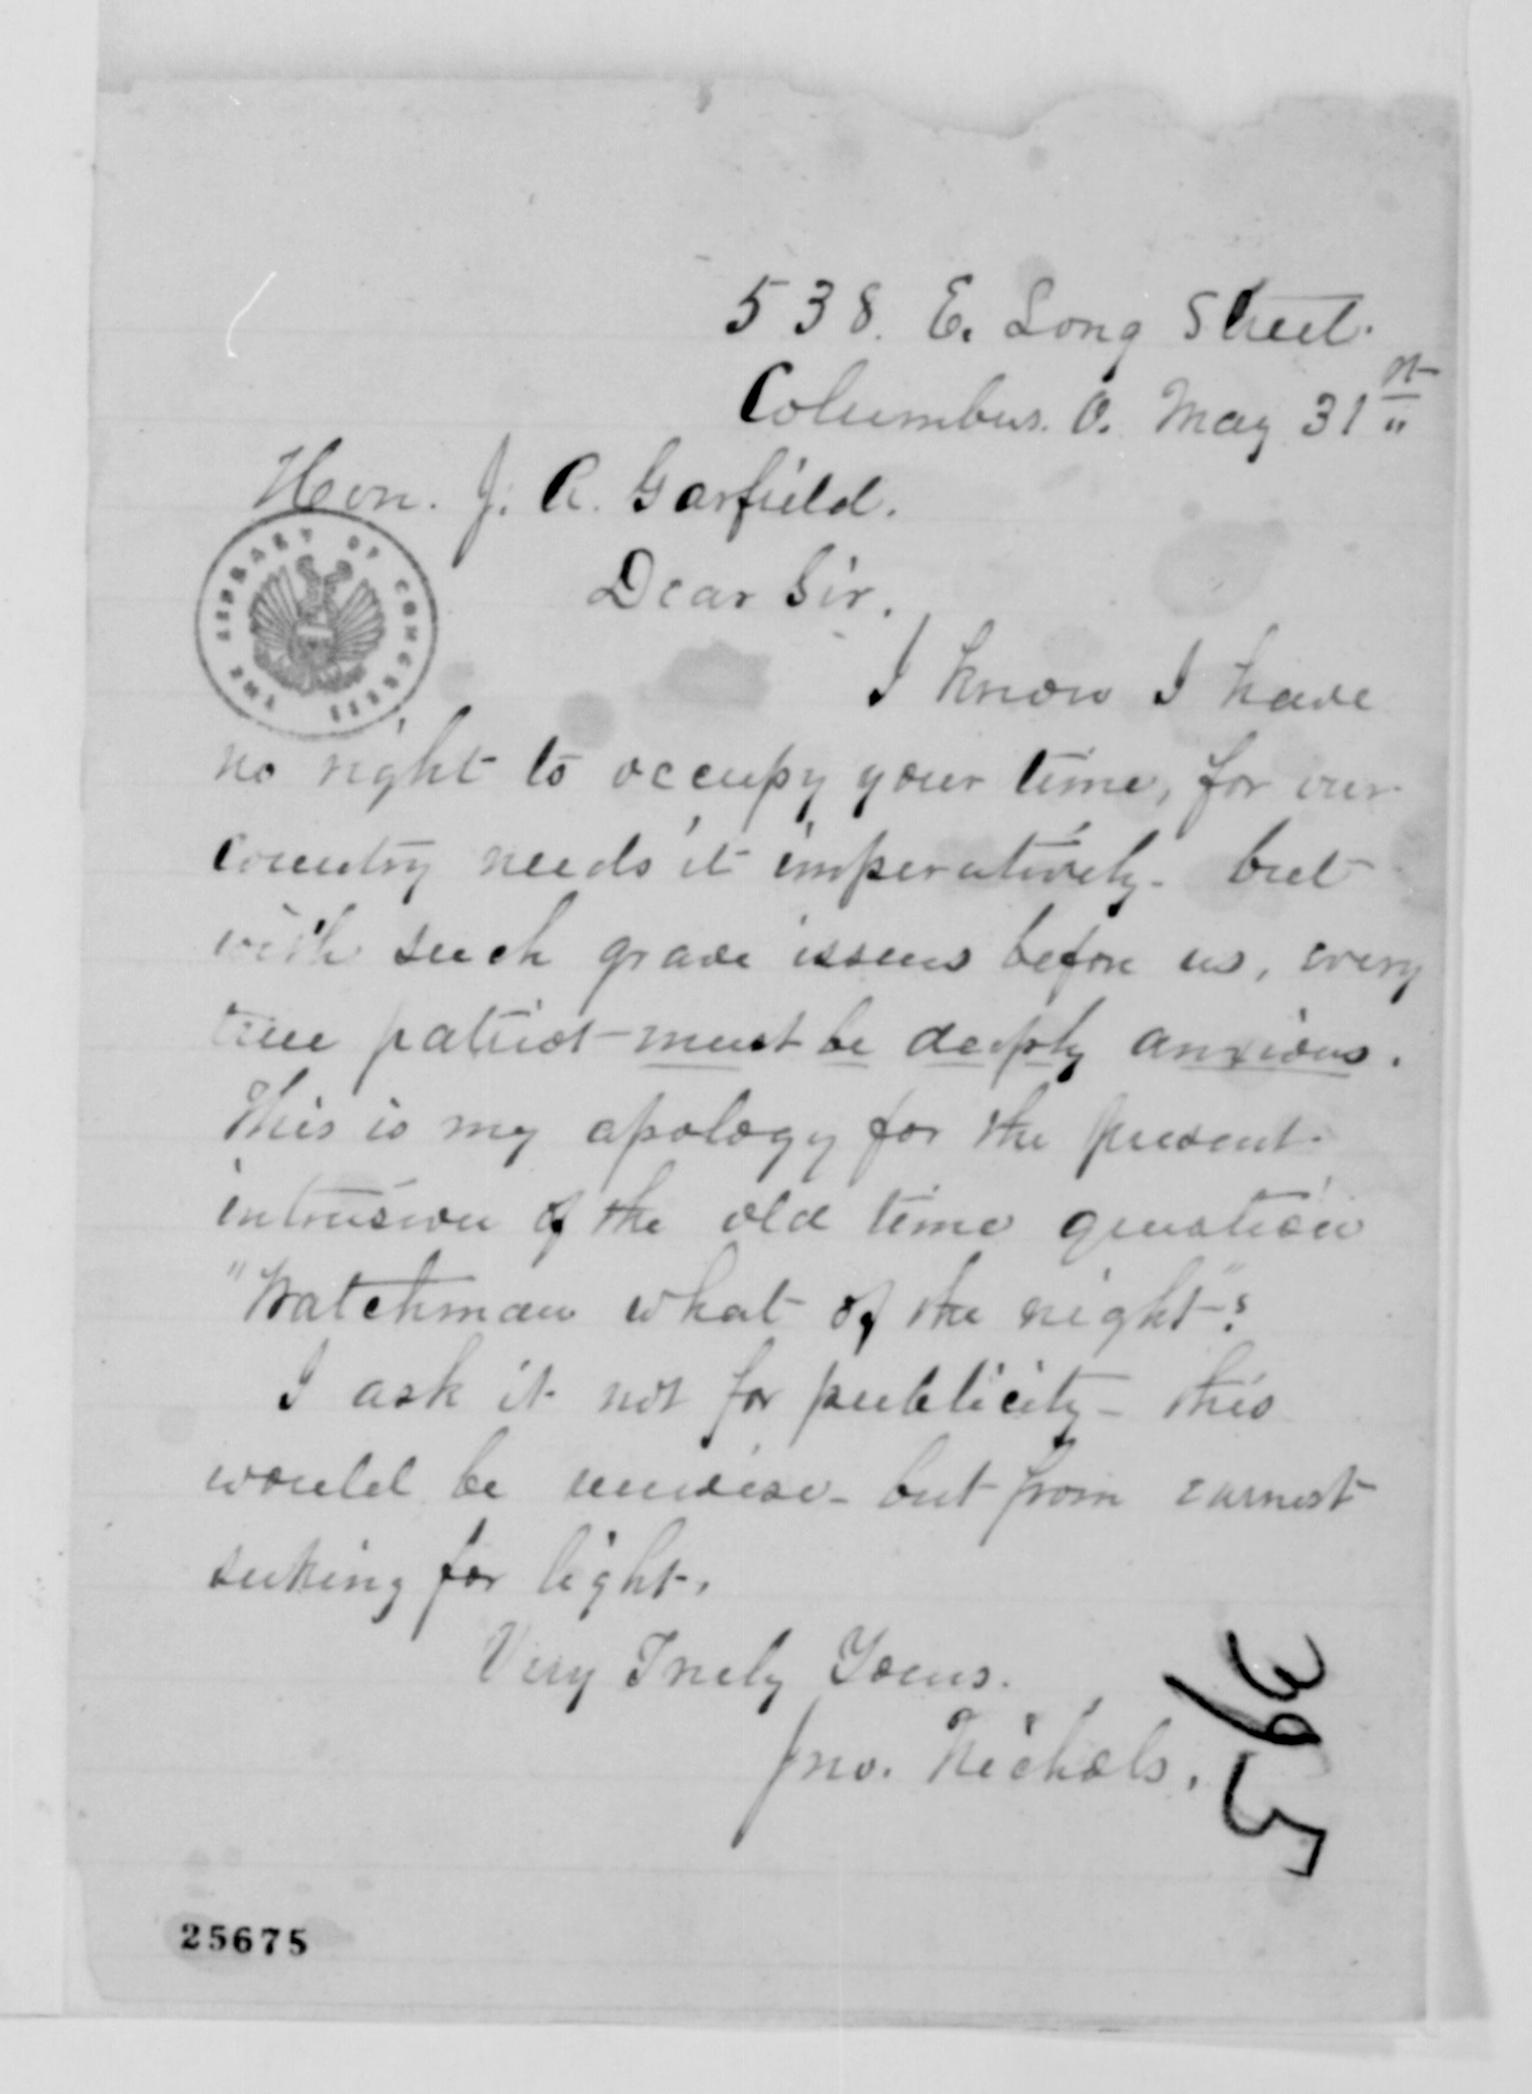 538. E. Long Street.
Columbus. O. May 31st
Hon. J. A. Garfield.
Dear Sir.
THE LIBRARY OF CONGRESS
I know I have
no right to occupy your time, for our
country needs it imperatively - but
with such grave issues before us, every
true patriot must be deeply anxious.
This is my apology for the present
intrusion of the old time question
"Watchman what of the night"?
I ask it not for publicity - this
would be unwise - but from earnest
seeking for light.
Very Truly Yours.
Jno. Nichols.
395
25675